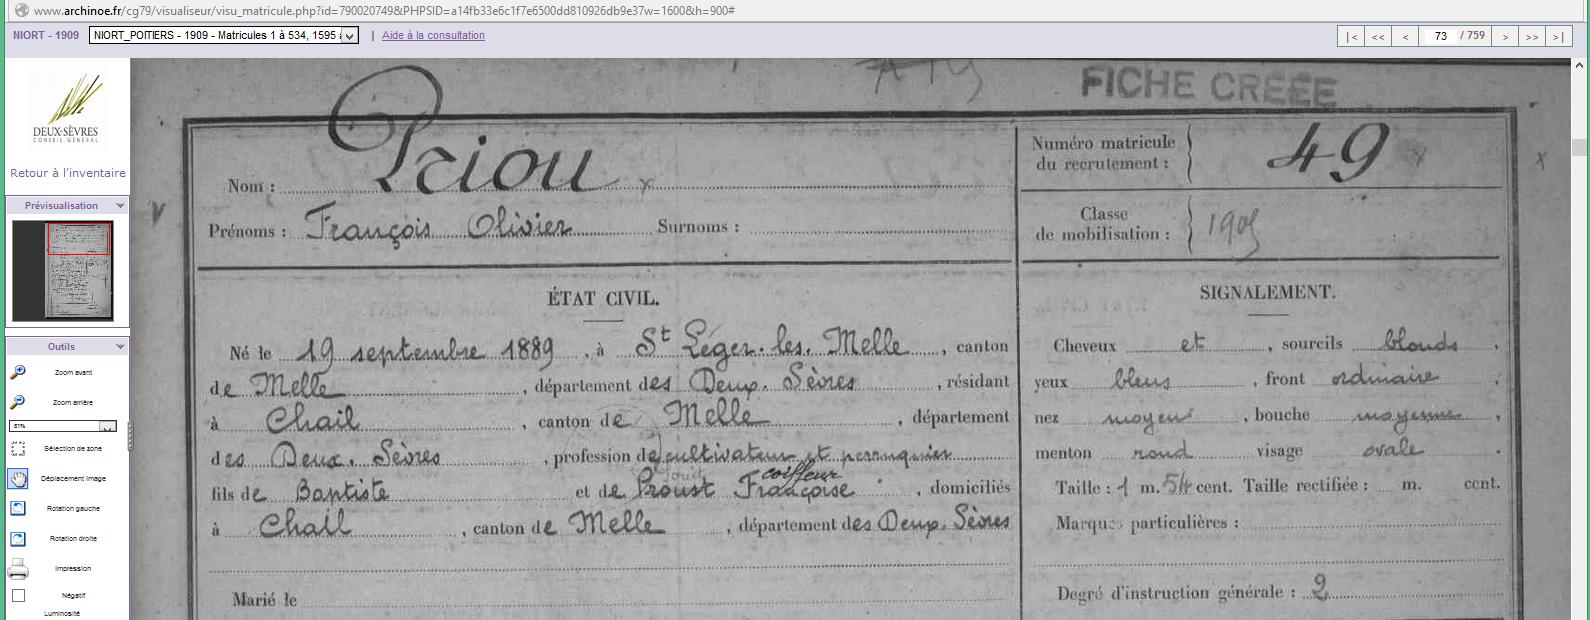 www.archinoe.fr/cg79/visualiseur/visu_matricule.php?id=790020749&PHPSID=a14fb33e6c1f7e6500dd810926db9e37w=1600&h=900#
NIORT - 1909 NIORT_POITIERS - 1909 - Matricules 1 à 534, 1595 | Aide à la consultation |< << < 73 / 759 > >> >|
DEUX-SÈVRES
CONSEIL GÉNÉRAL
Retour à l'inventaire
Prévisualisation
Outils
Zoom avant
Zoom arrière
81%
Sélection de zone
Déplacement image
Rotation gauche
Rotation droite
Impression
Négatif
Luminosité
FICHE CRÉÉE
Nom : Priou
Prénoms : François Olivier Surnoms :
Numéro matricule
du recrutement : 49
Classe
de mobilisation : 1909
ÉTAT CIVIL.
Né le 19 septembre 1889, à St Léger. les. Melle, canton
de Melle, département des Deux. Sèvres, résidant
à Chail, canton de Melle, département
des Deux. Sèvres, profession de cultivateur et perruquier
coiffeur
fils de Baptiste et de Proust Françoise, domiciliés
à Chail, canton de Melle, département des Deux. Sèvres
Marié le
SIGNALEMENT.
Cheveux et, sourcils blonds.
yeux bleus, front ordinaire
nez moyen, bouche moyenne,
menton rond visage ovale.
Taille : 1 m. 54 cent. Taille rectifiée : m. cent.
Marques particulières :
Degré d'instruction générale : 2